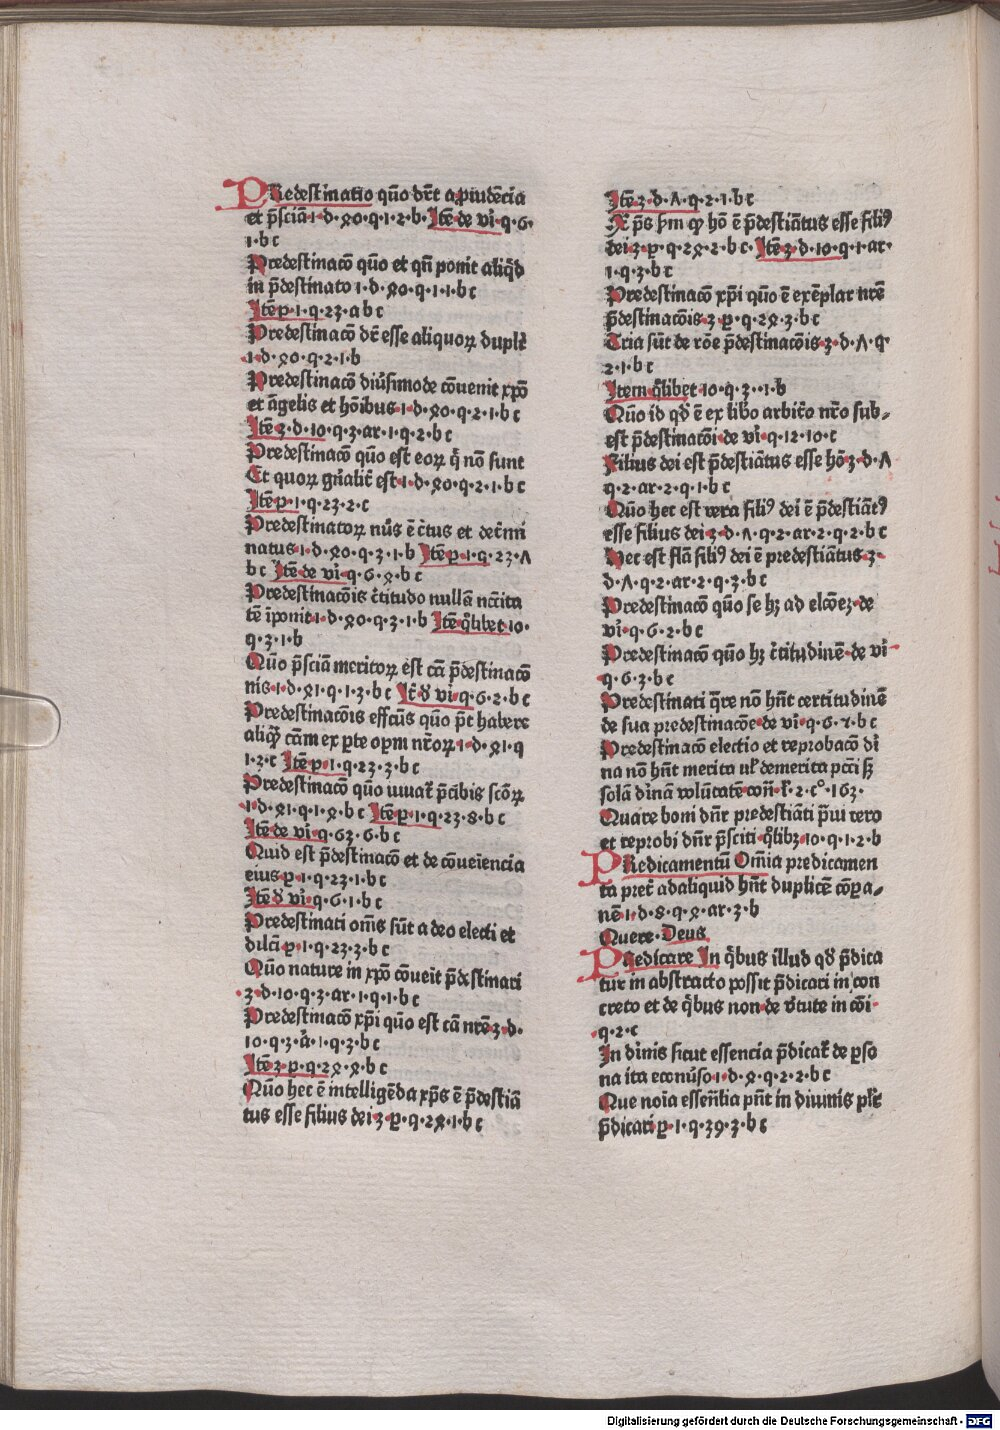 PRedestinatio quō dr̄t a ꝓuidēcia
et p̄sciā·1·d·ꝝo·q·1·2·b· Itē de vi·q·6·
1·b c
Predestinacō quō et qn̄ ponit aliq̇d
in p̄destinato 1·d·ꝝo·q·1·1·b c
Itē p·1·q·23·a b c
Predestinacō dr̄ esse aliquoꝝ duplr̄
1·d·ꝝo·q·2·1·b
Predestinacō diu̇simode cōuenit xp̄o
et āgelis et hōibus·1·d·ꝝo·q·2·1·b c
Itē 3·d·10·q·3·ar·1·q·2·b c
Predestinacō quō est eoꝝ q̇ nō sunt
Et quoꝝ gn̄alit̄ est·1·d·ꝝo·q·2·1·b c
Itē p·1·q·23·2·c
Predestinatoꝝ nūs ē c̄tus et det̄mi
natus·1·d·ꝝo·q·3·1·b Itē p·1·q·23·ʌ
b c Itē de vi·q·6·ꝝ·b c
Predestinacōis c̄titudo nullā nc̄cita
tē īponit·1·d·ꝝo·q·3·1·b Itē q̇libet 10·
q·3·1·b
Quō p̄sciā meritoꝝ est cā p̄destinacō
nis·1·d·ꝝ1·q·1·3·b c It̄ d̄ vi·q·6·2·b c
Predestinacōis effcūs quō pt̄ habere
aliq̄ cām ex ꝑte oꝑm nr̄oꝝ·1·d·ꝝ1·q
1·2·c Itē p·1·q·23·3·b c
Predestinacō quō iuuat̄ p̄cibis scōꝝ
1·d·ꝝ1·q·1·ꝝ·b c Itē p·1·q·23·8·b c
Itē de vi·q·63·6·b c
Quid est p̄destinacō et de cōueiencia
eius p·1·q·23·1·b c
Itē d̄ vi·q·6·1·b c
Predestinati om̄s sūt a deo electi et
dilcī p·1·q·23·3·b c
Quō nature in xp̄o cōueīt p̄destinari
3·d·10·q·3·ar·1·q·1·b c
Predestinacō xp̄i quō est cā nr̄e 3·d·
10·q·3·a·1·q·3·b c
Itē 3·p·q·2ꝝ·ꝝ·b c
Quō hec ē intelligēda xp̄s ē p̄destiā
tus esse filius dei 3·p·q·2ꝝ·1·b c
Itē 3·d·ʌ·q·2·1·b c
Xp̄s hm̄ qꝫ hō ē p̄destiātus esse filiꝰ
dei 3·p·q·2ꝝ·2·b c· Itē 3·d·10·q·1·ar·
1·q·3·b c
Predestinacō xp̄i quō ē exēplar nr̄e
p̄destinacōis 3·p·q·2ꝝ·3·b c
Tria sūt de rōe p̄destinacōis 3·d·ʌ·q·
2·1·b c
Item q̇libet 10·q·3·1·b
Quō id qd̄ ē ex libo arbitō nr̄o sub⸗
est p̄destinacōi de vi·q·12·10·c
Filius dei est p̄destiātus esse hō 3·d·ʌ
q·2·ar·2·q·1·b c
Quō hec est vera filiꝰ dei ē p̄destiātꝰ
esse filius dei 3·d·ʌ·q·2·ar·2·q·2·b c
Hec est fla filiꝰ dei ē predestiātus 3·
d·ʌ·q·2·ar·2·q·3·b c
Predestinacō quō se hꝫ ad elcōeꝫ de
vi·q·6·2·b c
Predestinacō quō hꝫ c̄titudinē de vi
q·6·3·b c
Predestinati q̄re nō hn̄t certitudinē
de sua predestinacōe de vi·q·6·ꝛ·b c
Predestinacō electio et reprobacō di
na nō hn̄t merita ul̄ demerita pcc̄i sꝫ
solā diuinā volūtatē con̄·k̄·2·cº·163·
Quare boni dn̄r predestiāti p̄ui vero
et reprobi dn̄r p̄sciti q̇libꝫ 10·q·1·2·b
PRedicamentū Om̄ia predicamen
ta pret̄ adaliquid hn̄t duplicē cōꝑa⸗
nē 1·d·8·q·ꝝ·ar·3·b
Quere·Deus
PRedicare In q̇bus illud qd̄ p̄dica
tur in abstracto possit p̄dicari in con
creto et de q̇bus non de vt̄ute in cōi
q·2·c
In diīnis sicut essencia p̄dicat̄ de ꝑso
na ita econūso 1·d·ꝝ·q·2·2·b c
Que noīa essen̄lia pn̄t in diuinis plr̄
p̄dicari p·1·q·39·3·b c
Digitalisierung gefördert durch die Deutsche Forschungsgemeinschaft - DFG